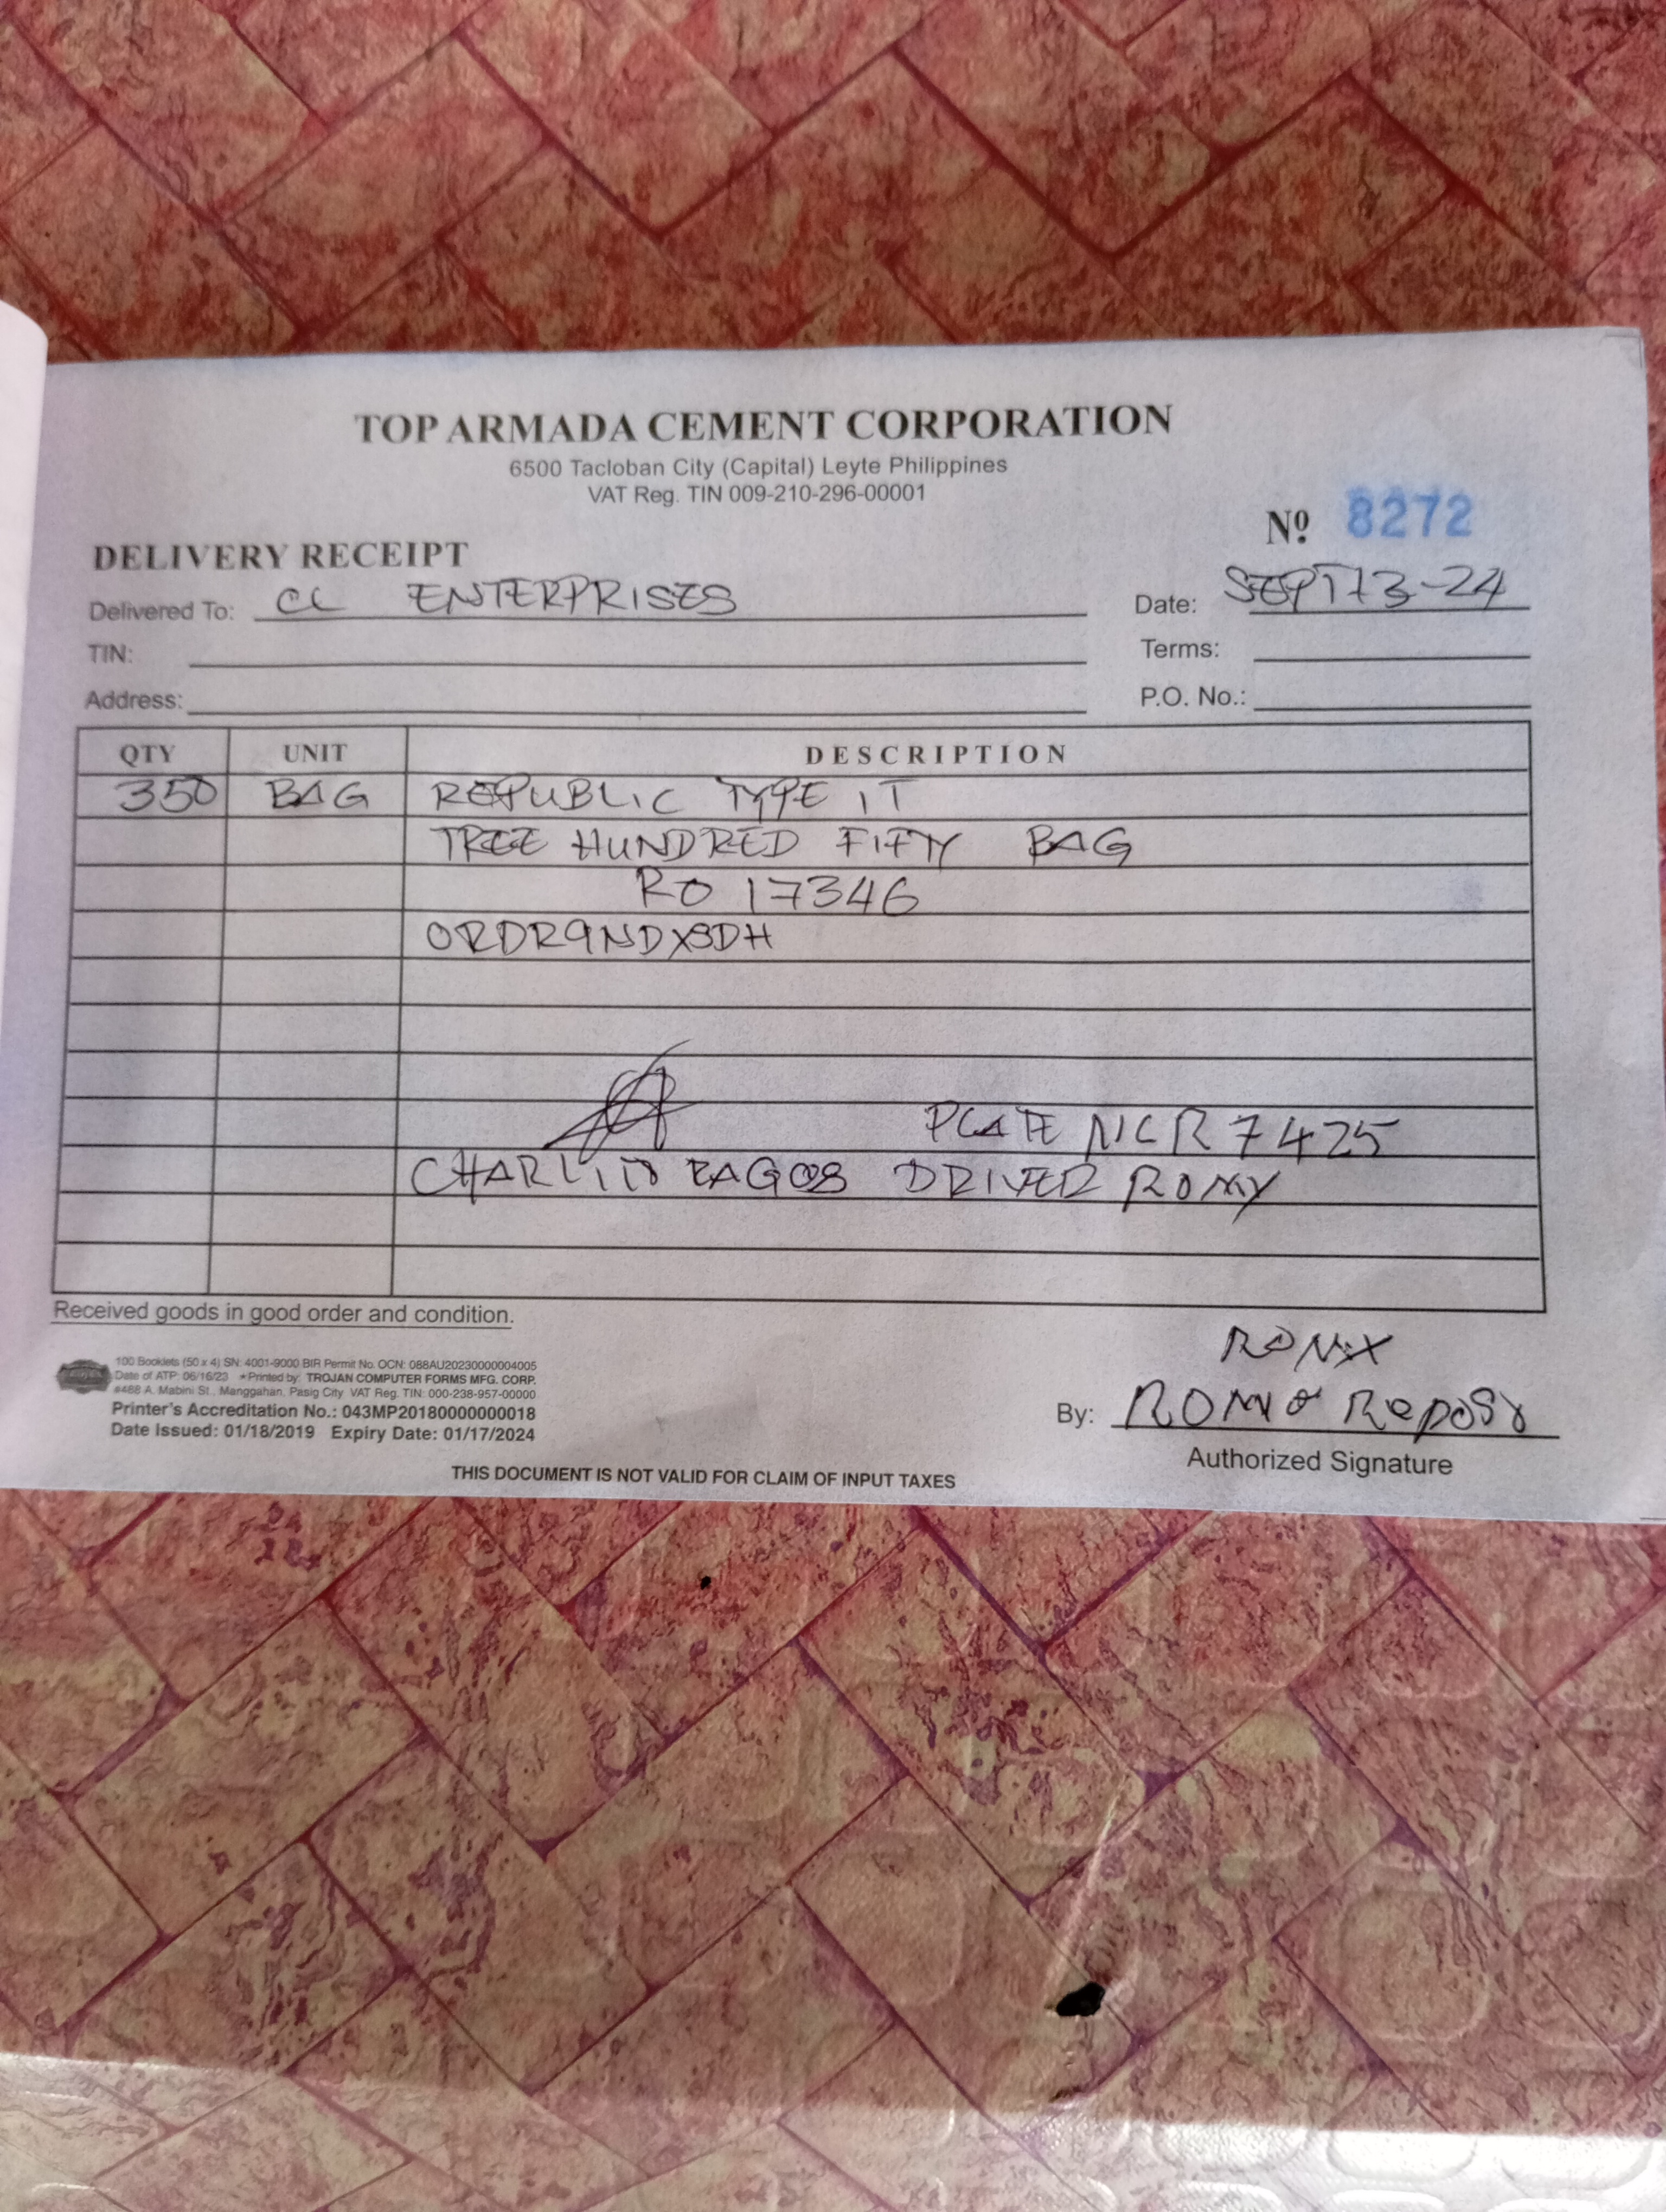 TOP ARMADA CEMENT CORPORATION
6500 Tacloban City (Capital) Leyte Philippines
VAT Reg. TIN 009-210-296-00001
Nº 8272
DELIVERY RECEIPT
Delivered To: CL ENTERPRISES
Date: SEPT 13-24
TIN:
Terms:
Address:
P.O. No.:
QTY UNIT DESCRIPTION
350 BAG REPUBLIC TYPE 1T
TREE HUNDRED FIFTY BAG
RO 17346
ORDR9NDXSDH
PLATE NCR 7425
CHARLITO BAGOS DRIVER ROMY
Received goods in good order and condition.
100 Booklets (50 x 4) SN: 4001-9000 BIR Permit No. OCN: 088AU20230000004005
Date of ATP: 06/16/23 • Printed by: TROJAN COMPUTER FORMS MFG. CORP.
#488 A. Mabini St., Manggahan, Pasig City VAT Reg. TIN: 000-238-957-00000
Printer's Accreditation No.: 043MP20180000000018
Date Issued: 01/18/2019 Expiry Date: 01/17/2024
By: ROMIO
Authorized Signature
THIS DOCUMENT IS NOT VALID FOR CLAIM OF INPUT TAXES